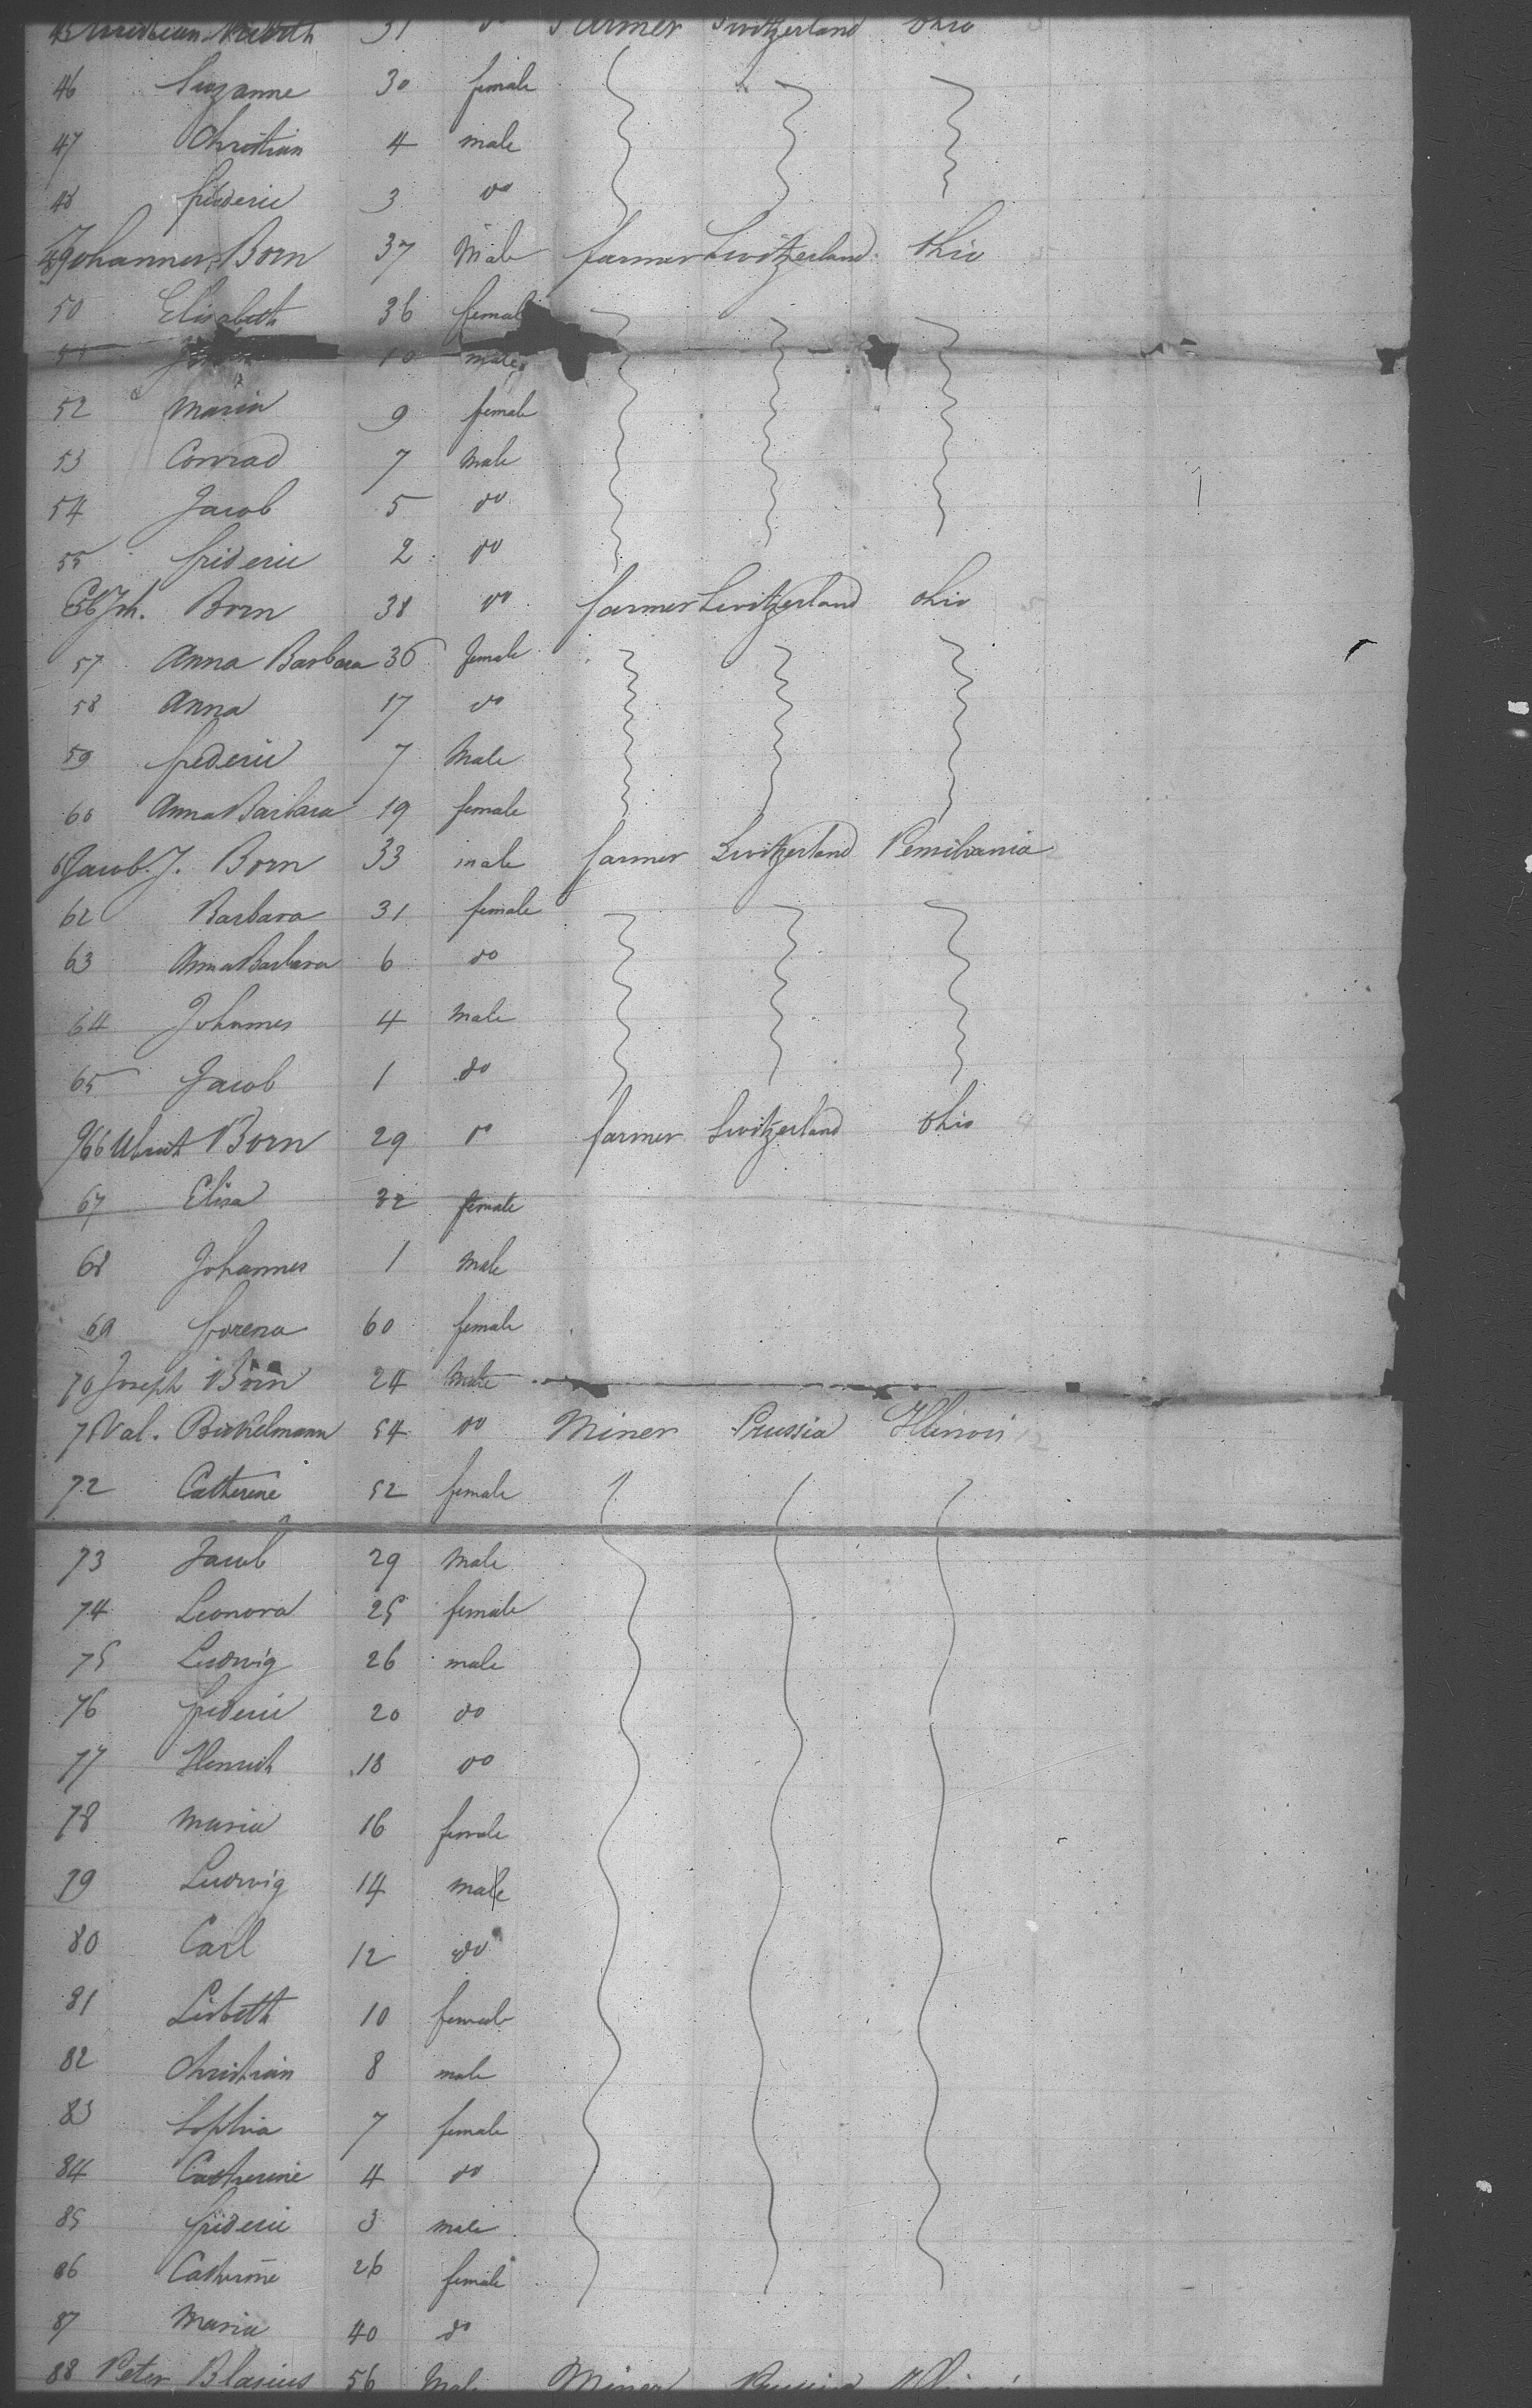 45 31 do Farmer Switzerland Ohio
46 Suzanne 30 female
47 Christian 4 male
48 frideric 3 do
49 Johannes Born 37 Male farmer Switzerland Ohio
50 Elisabeth 36 female
10 male
52 Maria 9 female
53 Conrad 7 Male
54 Jacob 5 do
55 frideric 2 do
56 Joh. Born 38 do farmer Switzerland Ohio
57 Anna Barbara 36 female
58 Anna 17 do
59 frederic 7 Male
60 Anna Barbara 19 female
61 Jacob. J. Born 33 male farmer Switzerland Pensilvania
62 Barbara 31 female
63 Anna Barbara 6 do
64 Johannes 4 Male
65 Jacob 1 do
66 Ulrich Born 29 do farmer Switzerland Ohio 4
67 Elisa 32 female
68 Johannes 1 Male
69 60 female
70 Joseph Born 24 Male
71 Val. Birkelmann 54 do Miner Prussia Illinois 12
72 Catherine 52 female
73 Jacob 29 Male
74 Leonora 25 female
75 Ludwig 26 male
76 frederic 20 do
77 Henrich 18 do
78 Maria 16 female
79 Ludwig 14 male
80 Carl 12 do
81 Lisbeth 10 female
82 Christian 8 male
83 Sophia 7 female
84 Catherine 4 do
85 frideric 3 male
86 Catherine 26 female
87 Maria 40 do
88 Peter Blasius 56 Male Miner Prussia Illinois